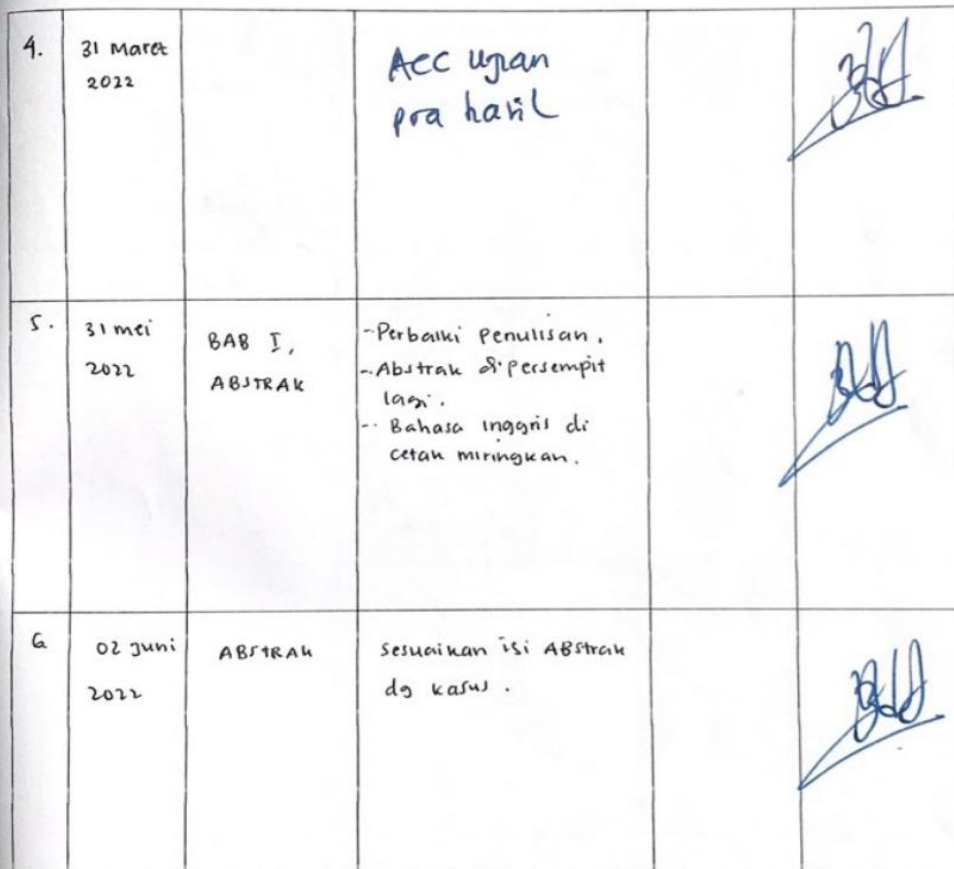 4.
31 Maret
2022
Acc ujian
pra hasil
5.
31 mei
2022
BAB I,
ABSTRAK
- Perbaiki Penulisan.
- Abstrak dipersempit
lagi.
- Bahasa inggris di
cetak miringkan.
6
02 Juni
2022
ABSTRAK
Sesuaikan isi ABStrak
dg kasus.